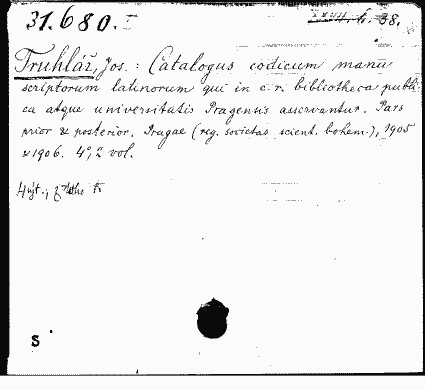 31.680. I XXVII. b. 38.
Truhlář, Jos.: Catalogus codicum manu
scriptorum latinorum qui in c. r. bibliotheca publi-
ca atque universitatis Pragensis asservantur. Pars
prior & posterior. Pragae (reg. societas scient. bohem.), 1905
& 1906. 4°, 2 vol.
S